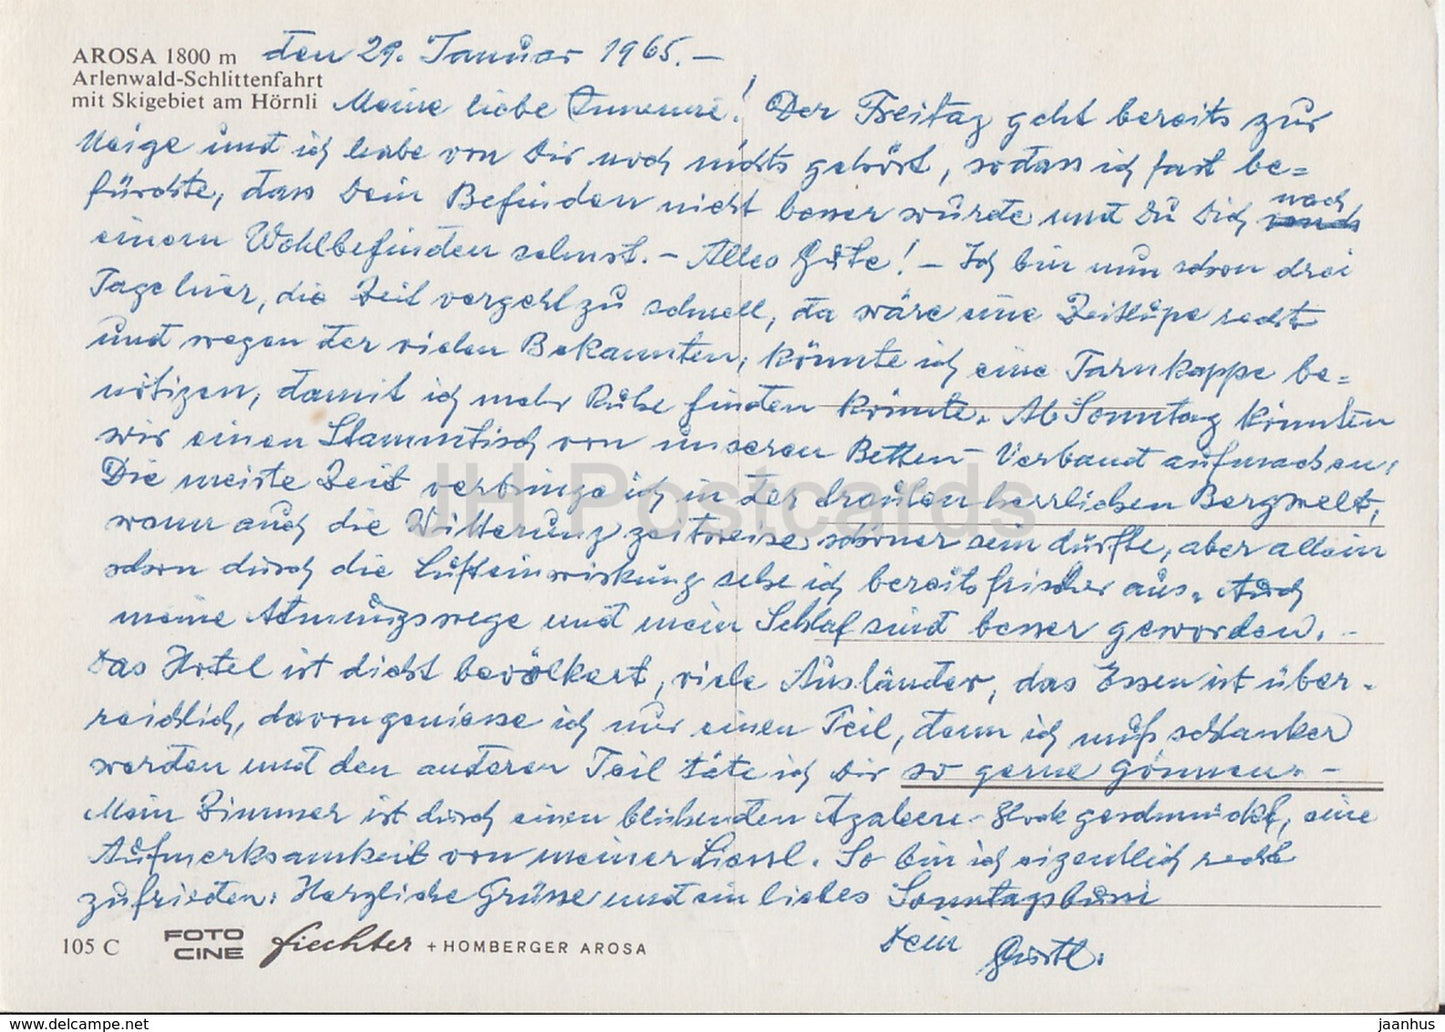 AROSA 1800 m den 29. Januar 1965.–
Arlenwald-Schlittenfahrt
mit Skigebiet am Hörnli Meine liebe ! Der Freitag geht bereits zur
Neige und ich habe von Dir noch nichts gehört, sodass ich fast be=
fürchte, dass Dein Befinden nicht besser würde und Du Dich nach
einem Wohlbefinden sehnst. – Alles Gute! – Ich bin nun schon drei
Tage hier, die Zeit vergeht zu schnell, da wäre eine Zeitlupe recht
und wegen der vielen Bekannten, könnte ich eine Tarnkappe be=
nötigen, damit ich mehr Ruhe finden könnte. Ab Sonntag könnten
wir einen Stammtisch von unseren Betten-Verband aufmachen.
Die meiste Zeit verbringe ich in der herrlichen Bergwelt,
wenn auch die Witterung zeitweise schöner sein dürfte, aber allein
schon durch die Lufteinwirkung sehe ich bereits frischer aus. Auch
meine Atmungswege und mein Schlaf sind besser geworden. –
Das Hotel ist dicht bevölkert, viele Ausländer, das Essen ist über-
reichlich, davon geniesse ich nur einen Teil, denn ich muß schlanker
werden und den anderen Teil täte ich Dir so gerne gönnen. –
Mein Zimmer ist durch einen blühenden Azaleen-Stock geschmückt, eine
Aufmerksamkeit von meiner Liesl. So bin ich eigentlich recht
zufrieden. Herzliche Grüsse und ein liebes Sonntagsbussi
Dein
105 C FOTO CINE fiechter + HOMBERGER AROSA
JH Postcards
www.delcampe.net
jaanhus